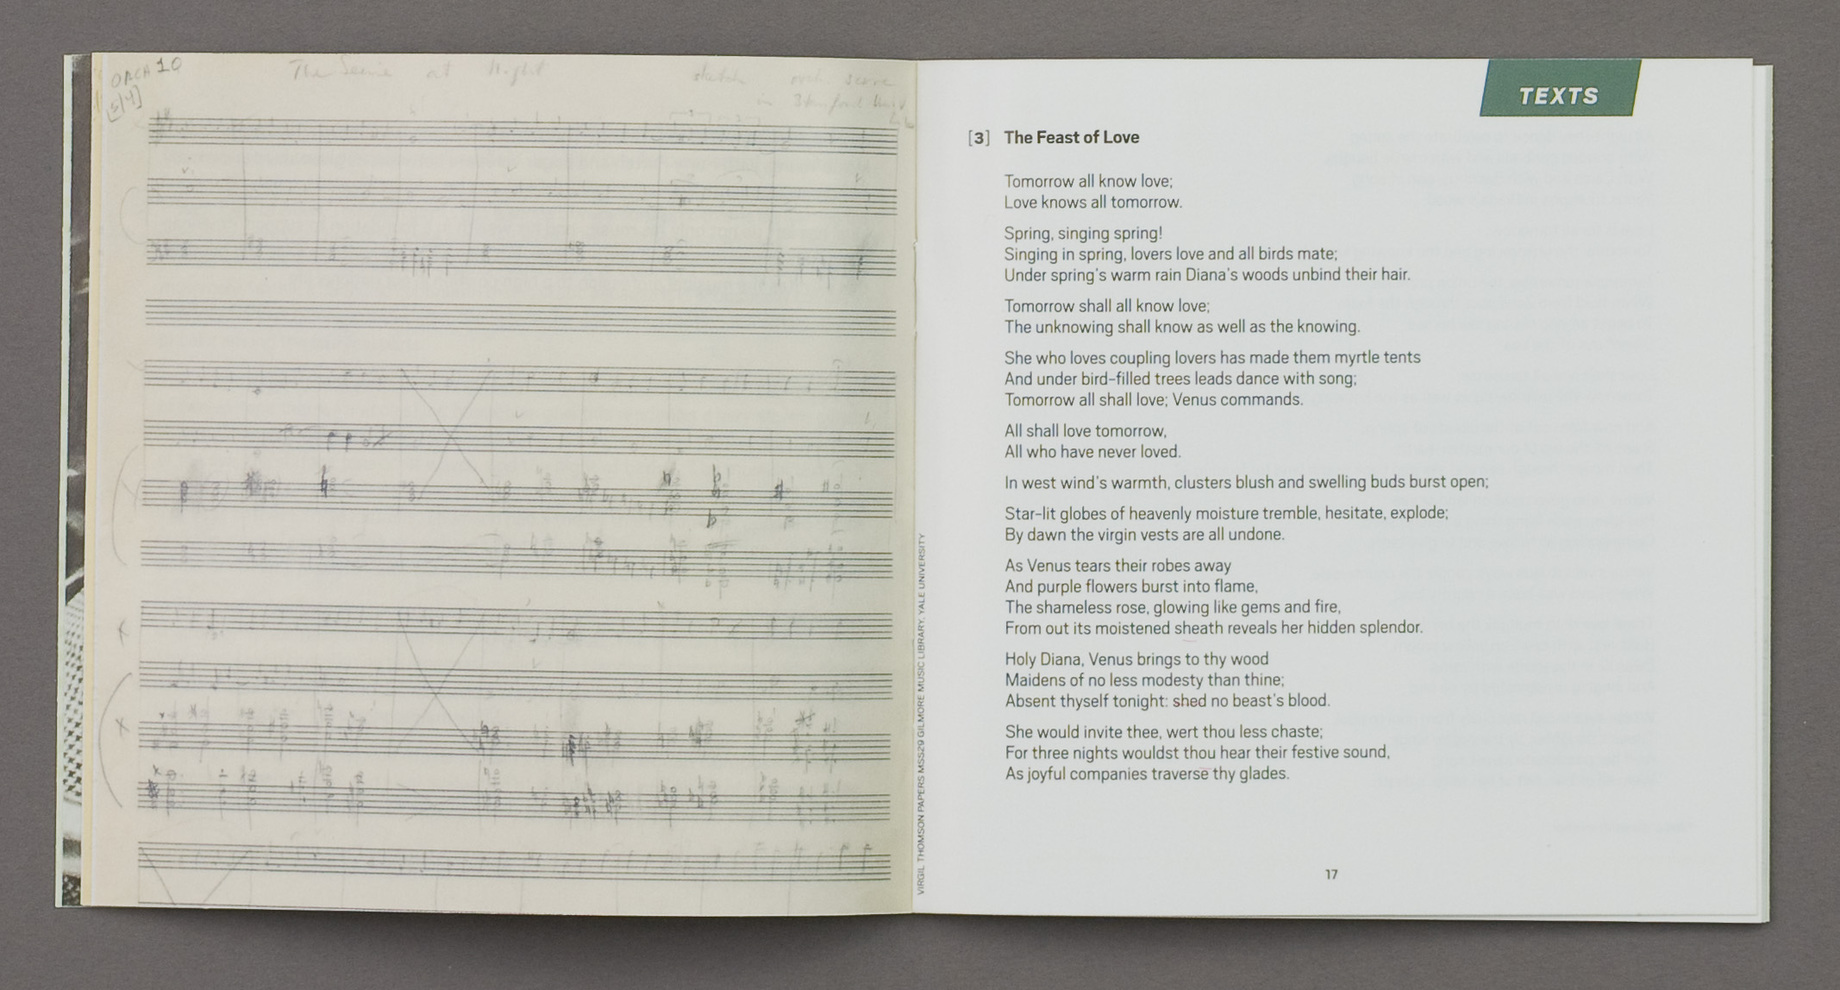 ORCH 10
[3/4]
The Seine at Night
sketch orch. score
in Stanford
VIRGIL THOMSON PAPERS MSS29 GILMORE MUSIC LIBRARY, YALE UNIVERSITY
TEXTS
[3] The Feast of Love
Tomorrow all know love;
Love knows all tomorrow.
Spring, singing spring!
Singing in spring, lovers love and all birds mate;
Under spring's warm rain Diana's woods unbind their hair.
Tomorrow shall all know love;
The unknowing shall know as well as the knowing.
She who loves coupling lovers has made them myrtle tents
And under bird-filled trees leads dance with song;
Tomorrow all shall love; Venus commands.
All shall love tomorrow,
All who have never loved.
In west wind's warmth, clusters blush and swelling buds burst open;
Star-lit globes of heavenly moisture tremble, hesitate, explode;
By dawn the virgin vests are all undone.
As Venus tears their robes away
And purple flowers burst into flame,
The shameless rose, glowing like gems and fire,
From out its moistened sheath reveals her hidden splendor.
Holy Diana, Venus brings to thy wood
Maidens of no less modesty than thine;
Absent thyself tonight: shed no beast's blood.
She would invite thee, wert thou less chaste;
For three nights wouldst thou hear their festive sound,
As joyful companies traverse thy glades.
17